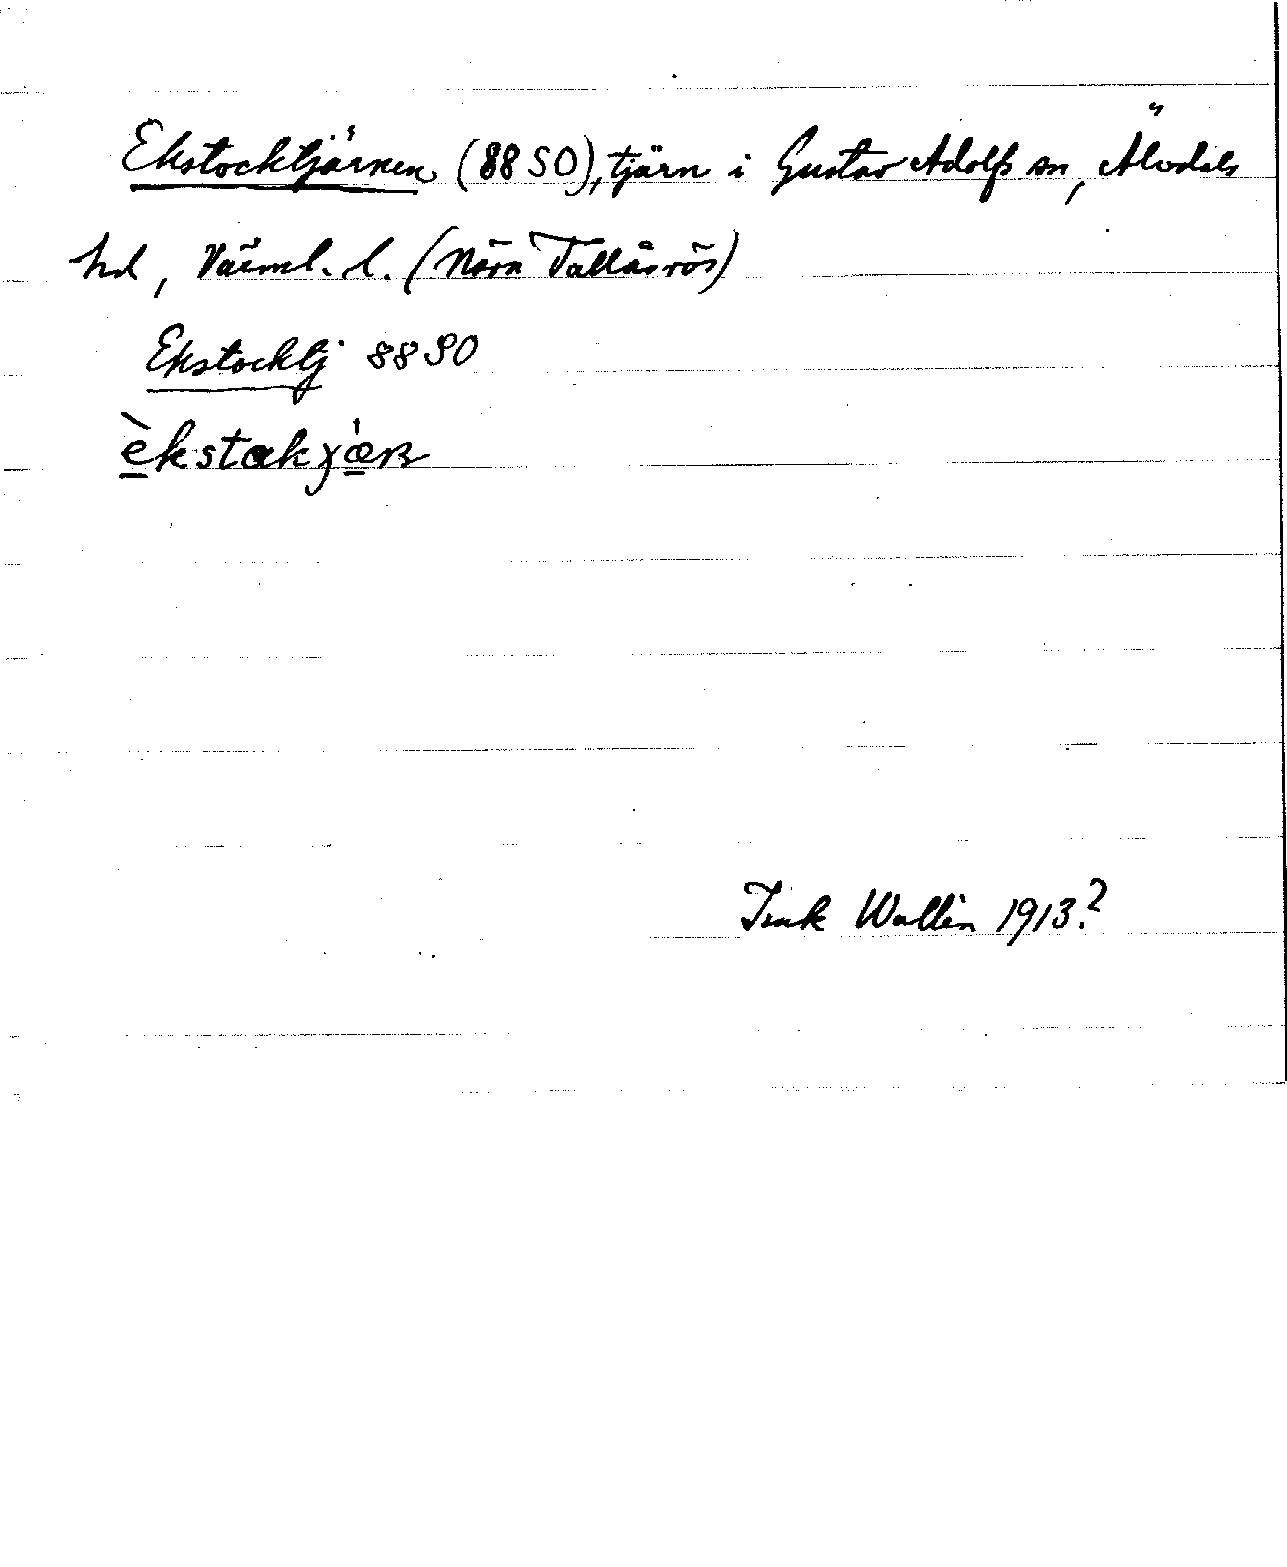 Ekstocktjärnen (88 SO), tjärn i Gustav Adolfs sn, Älvdals
hd, Värml. l. (Nära Tallåsrös)
Ekstocktj 88 SO
èkstakjæn
Wallin 1913?